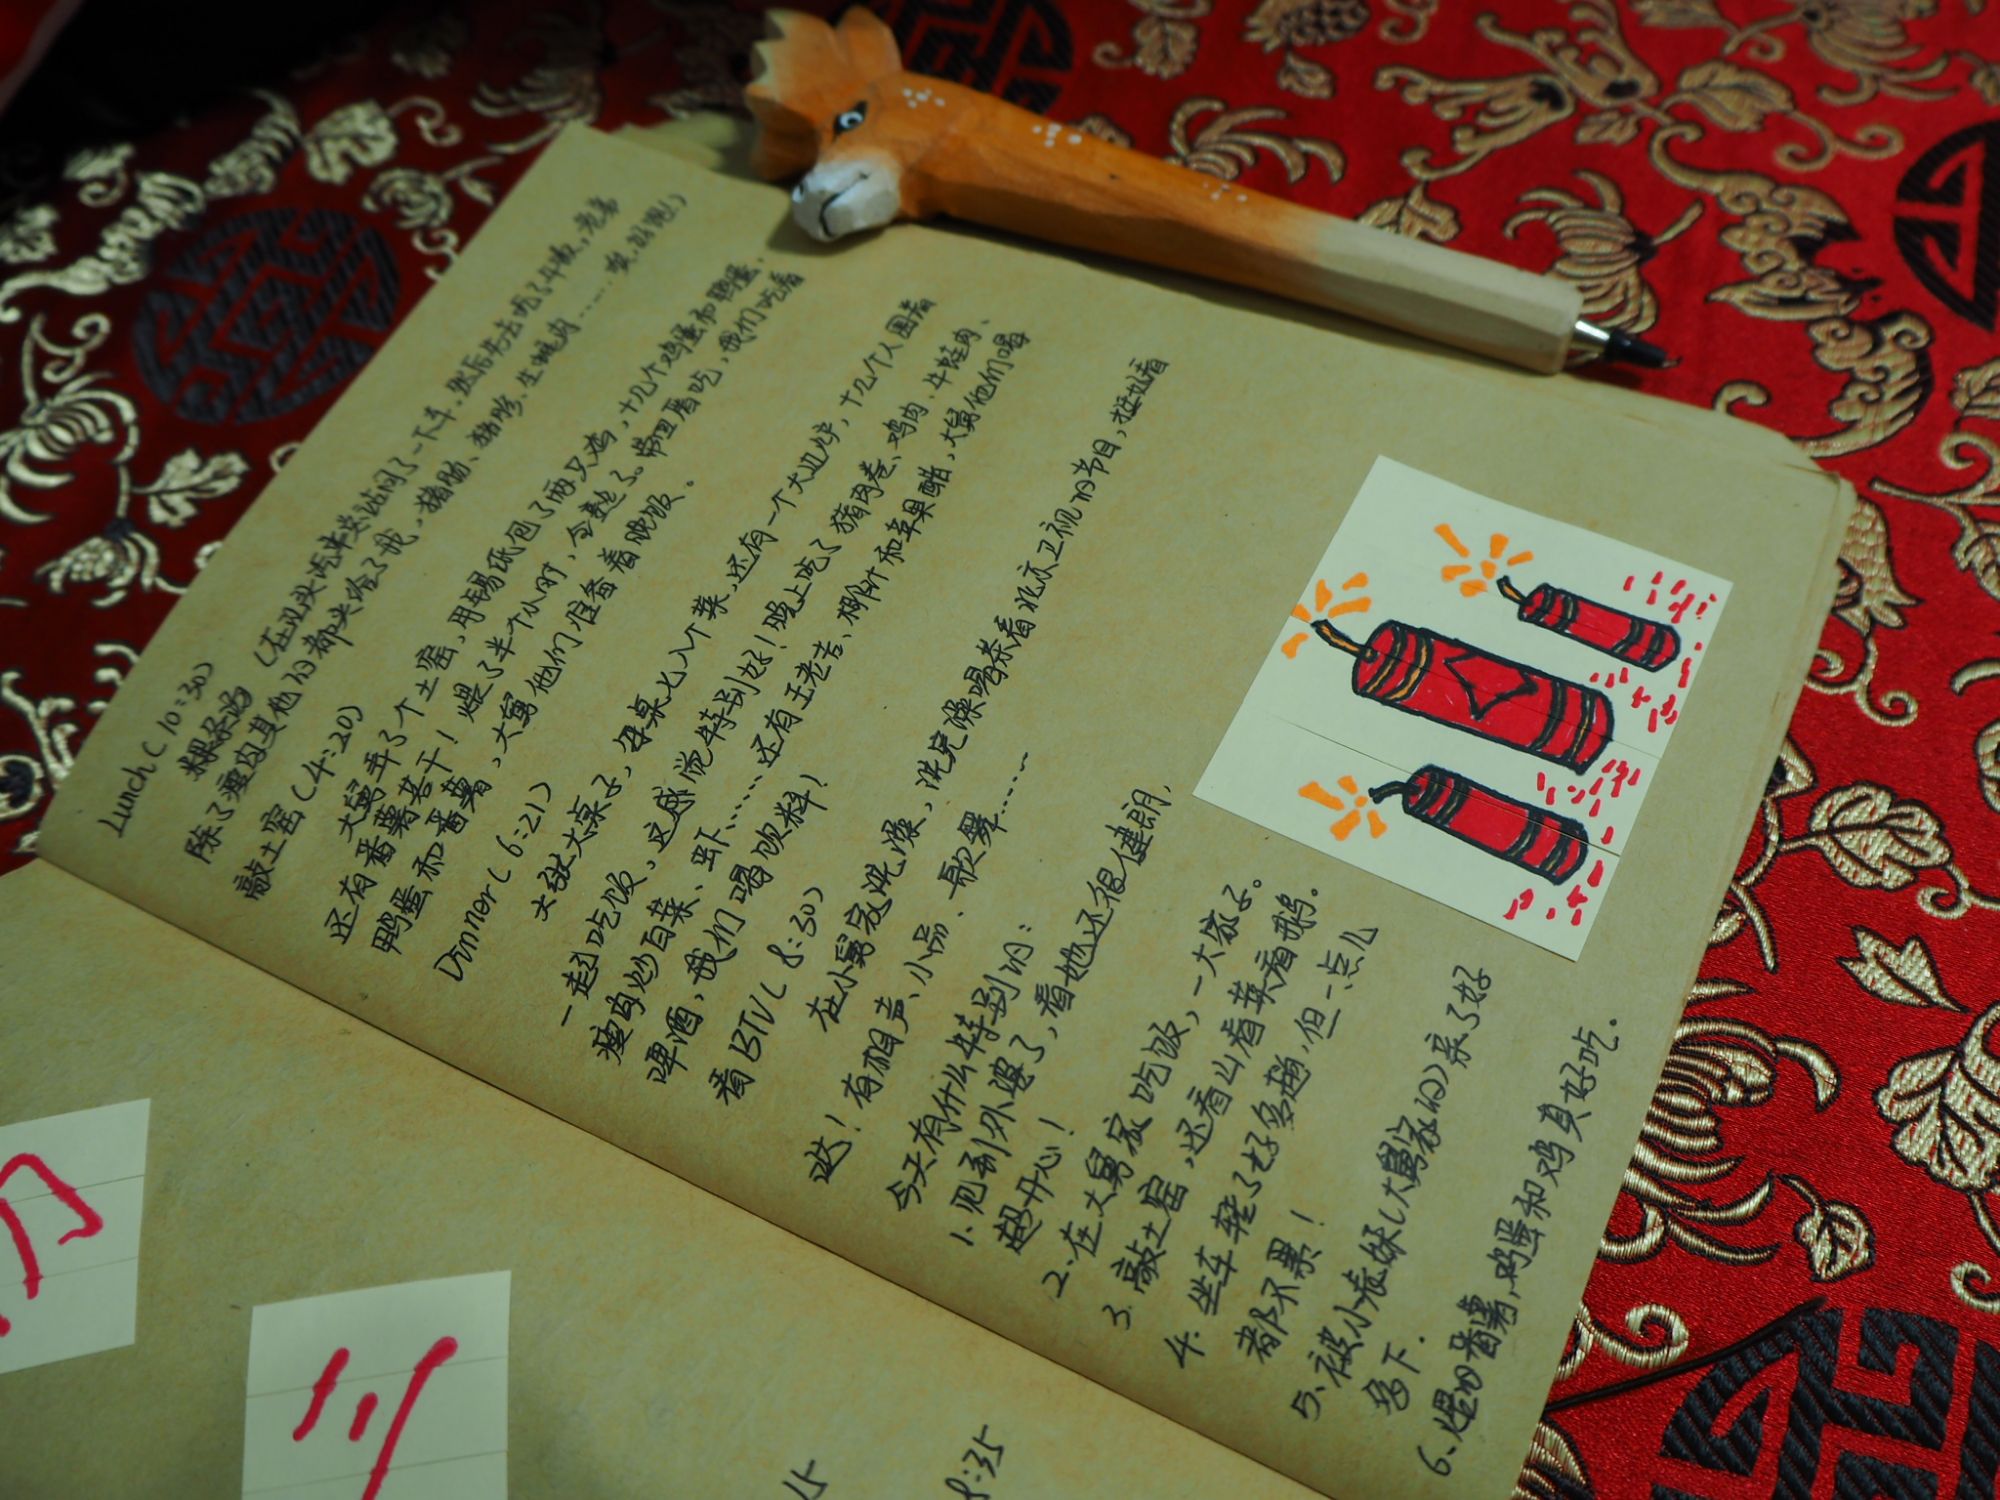 Lunch (10:30)
粿条汤 (在汕头汽车总站问了一下车，然后先去吃了午饭，老弟
除了瘦肉其他的都夹给了我，猪肠、猪胗、生蚝肉……唉，好饱！)
敲土窑 (4:20)
大舅弄了个土窑，用锡纸包了两只鸡，十几个鸡蛋和鹅蛋，
还有番薯若干！煨了半个小时，全熟了。带回屋吃，我们吃着
鸭蛋和番薯，大舅他们准备着晚饭。
Dinner (6:21)
大张大桌子，每桌七八个菜，还有一个大边炉，十几个人围着
一起吃饭，这感觉特别好！晚上吃了猪肉卷、鸡肉、牛蛙肉、
瘦肉炒白菜、虾……还有王老吉、椰汁和苹果醋，大舅他们喝
啤酒，我们喝饮料！
看BTV (8:30)
在小舅家洗澡，洗完澡喝茶看北京卫视的节目，挺好看
哒！有相声、小品、歌舞……
今天有什么特别的：
1. 见到外婆了，看她还很健朗，
超开心！
2. 在大舅家吃饭，一大家子。
3. 敲土窑，还看山看菜看鹅。
4. 坐车转了好多趟，但一点儿
都不累！
5. 被小表妹(大舅家的)亲了好
多下.
6. 煨的番薯,鸡蛋和鸡真好吃.
初
三
8:35